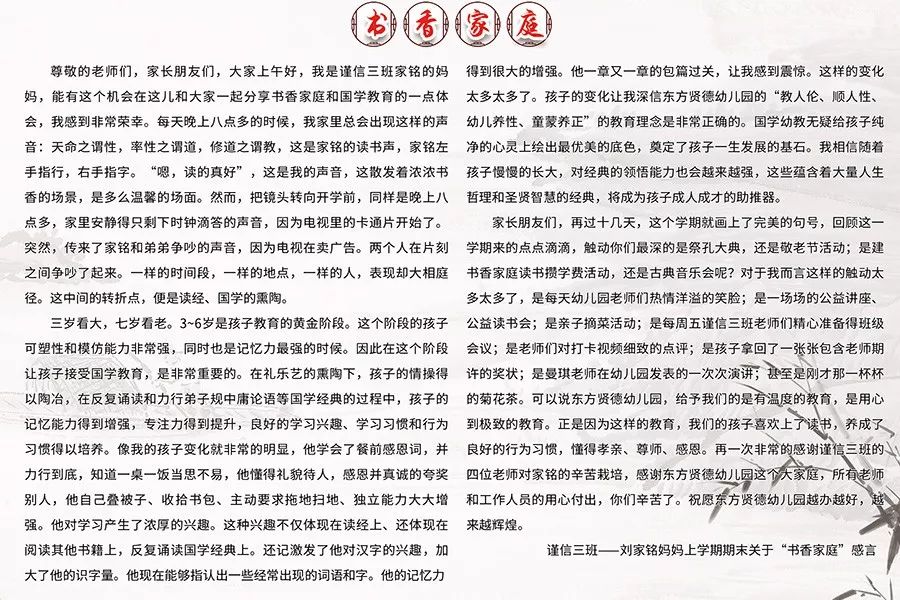 书香家庭
尊敬的老师们，家长朋友们，大家上午好，我是谨信三班家铭的妈
妈，能有这个机会在这儿和大家一起分享书香家庭和国学教育的一点体
会，我感到非常荣幸。每天晚上八点多的时候，我家里总会出现这样的声
音：天命之谓性，率性之谓道，修道之谓教，这是家铭的读书声，家铭左
手指行，右手指字。“嗯，读的真好”，这是我的声音，这散发着浓浓书
香的场景，是多么温馨的场面。然而，把镜头转向开学前，同样是晚上八
点多，家里安静得只剩下时钟滴答的声音，因为电视里的卡通片开始了。
突然，传来了家铭和弟弟争吵的声音，因为电视在卖广告。两个人在片刻
之间争吵了起来。一样的时间段，一样的地点，一样的人，表现却大相庭
径。这中间的转折点，便是读经、国学的熏陶。
三岁看大，七岁看老。3~6岁是孩子教育的黄金阶段。这个阶段的孩子
可塑性和模仿能力非常强，同时也是记忆力最强的时候。因此在这个阶段
让孩子接受国学教育，是非常重要的。在礼乐艺的熏陶下，孩子的情操得
以陶冶，在反复诵读和力行弟子规中庸论语等国学经典的过程中，孩子的
记忆能力得到增强，专注力得到提升，良好的学习兴趣、学习习惯和行为
习惯得以培养。像我的孩子变化就非常的明显，他学会了餐前感恩词，并
力行到底，知道一桌一饭当思不易，他懂得礼貌待人，感恩并真诚的夸奖
别人，他自己叠被子、收拾书包、主动要求拖地扫地、独立能力大大增
强。他对学习产生了浓厚的兴趣。这种兴趣不仅体现在读经上、还体现在
阅读其他书籍上，反复诵读国学经典上。还记激发了他对汉字的兴趣，加
大了他的识字量。他现在能够指认出一些经常出现的词语和字。他的记忆力
得到很大的增强。他一章又一章的包篇过关，让我感到震惊。这样的变化
太多太多了。孩子的变化让我深信东方贤德幼儿园的“教人伦、顺人性、
幼儿养性、童蒙养正”的教育理念是非常正确的。国学幼教无疑给孩子纯
净的心灵上绘出最优美的底色，奠定了孩子一生发展的基石。我相信随着
孩子慢慢的长大，对经典的领悟能力也会越来越强，这些蕴含着大量人生
哲理和圣贤智慧的经典，将成为孩子成人成才的助推器。
家长朋友们，再过十几天，这个学期就画上了完美的句号，回顾这一
学期来的点点滴滴，触动你们最深的是祭孔大典，还是敬老节活动；是建
书香家庭读书攒学费活动，还是古典音乐会呢？对于我而言这样的触动太
多太多了，是每天幼儿园老师们热情洋溢的笑脸；是一场场的公益讲座、
公益读书会；是亲子摘菜活动；是每周五谨信三班老师们精心准备得班级
会议；是老师们对打卡视频细致的点评；是孩子拿回了一张张包含老师期
许的奖状；是曼琪老师在幼儿园发表的一次次演讲；甚至是刚才那一杯杯
的菊花茶。可以说东方贤德幼儿园，给予我们的是有温度的教育，是用心
到极致的教育。正是因为这样的教育，我们的孩子喜欢上了读书，养成了
良好的行为习惯，懂得孝亲、尊师、感恩。再一次非常的感谢谨信三班的
四位老师对家铭的辛苦栽培，感谢东方贤德幼儿园这个大家庭，所有老师
和工作人员的用心付出，你们辛苦了。祝愿东方贤德幼儿园越办越好，越
来越辉煌。
谨信三班——刘家铭妈妈上学期期末关于“书香家庭”感言